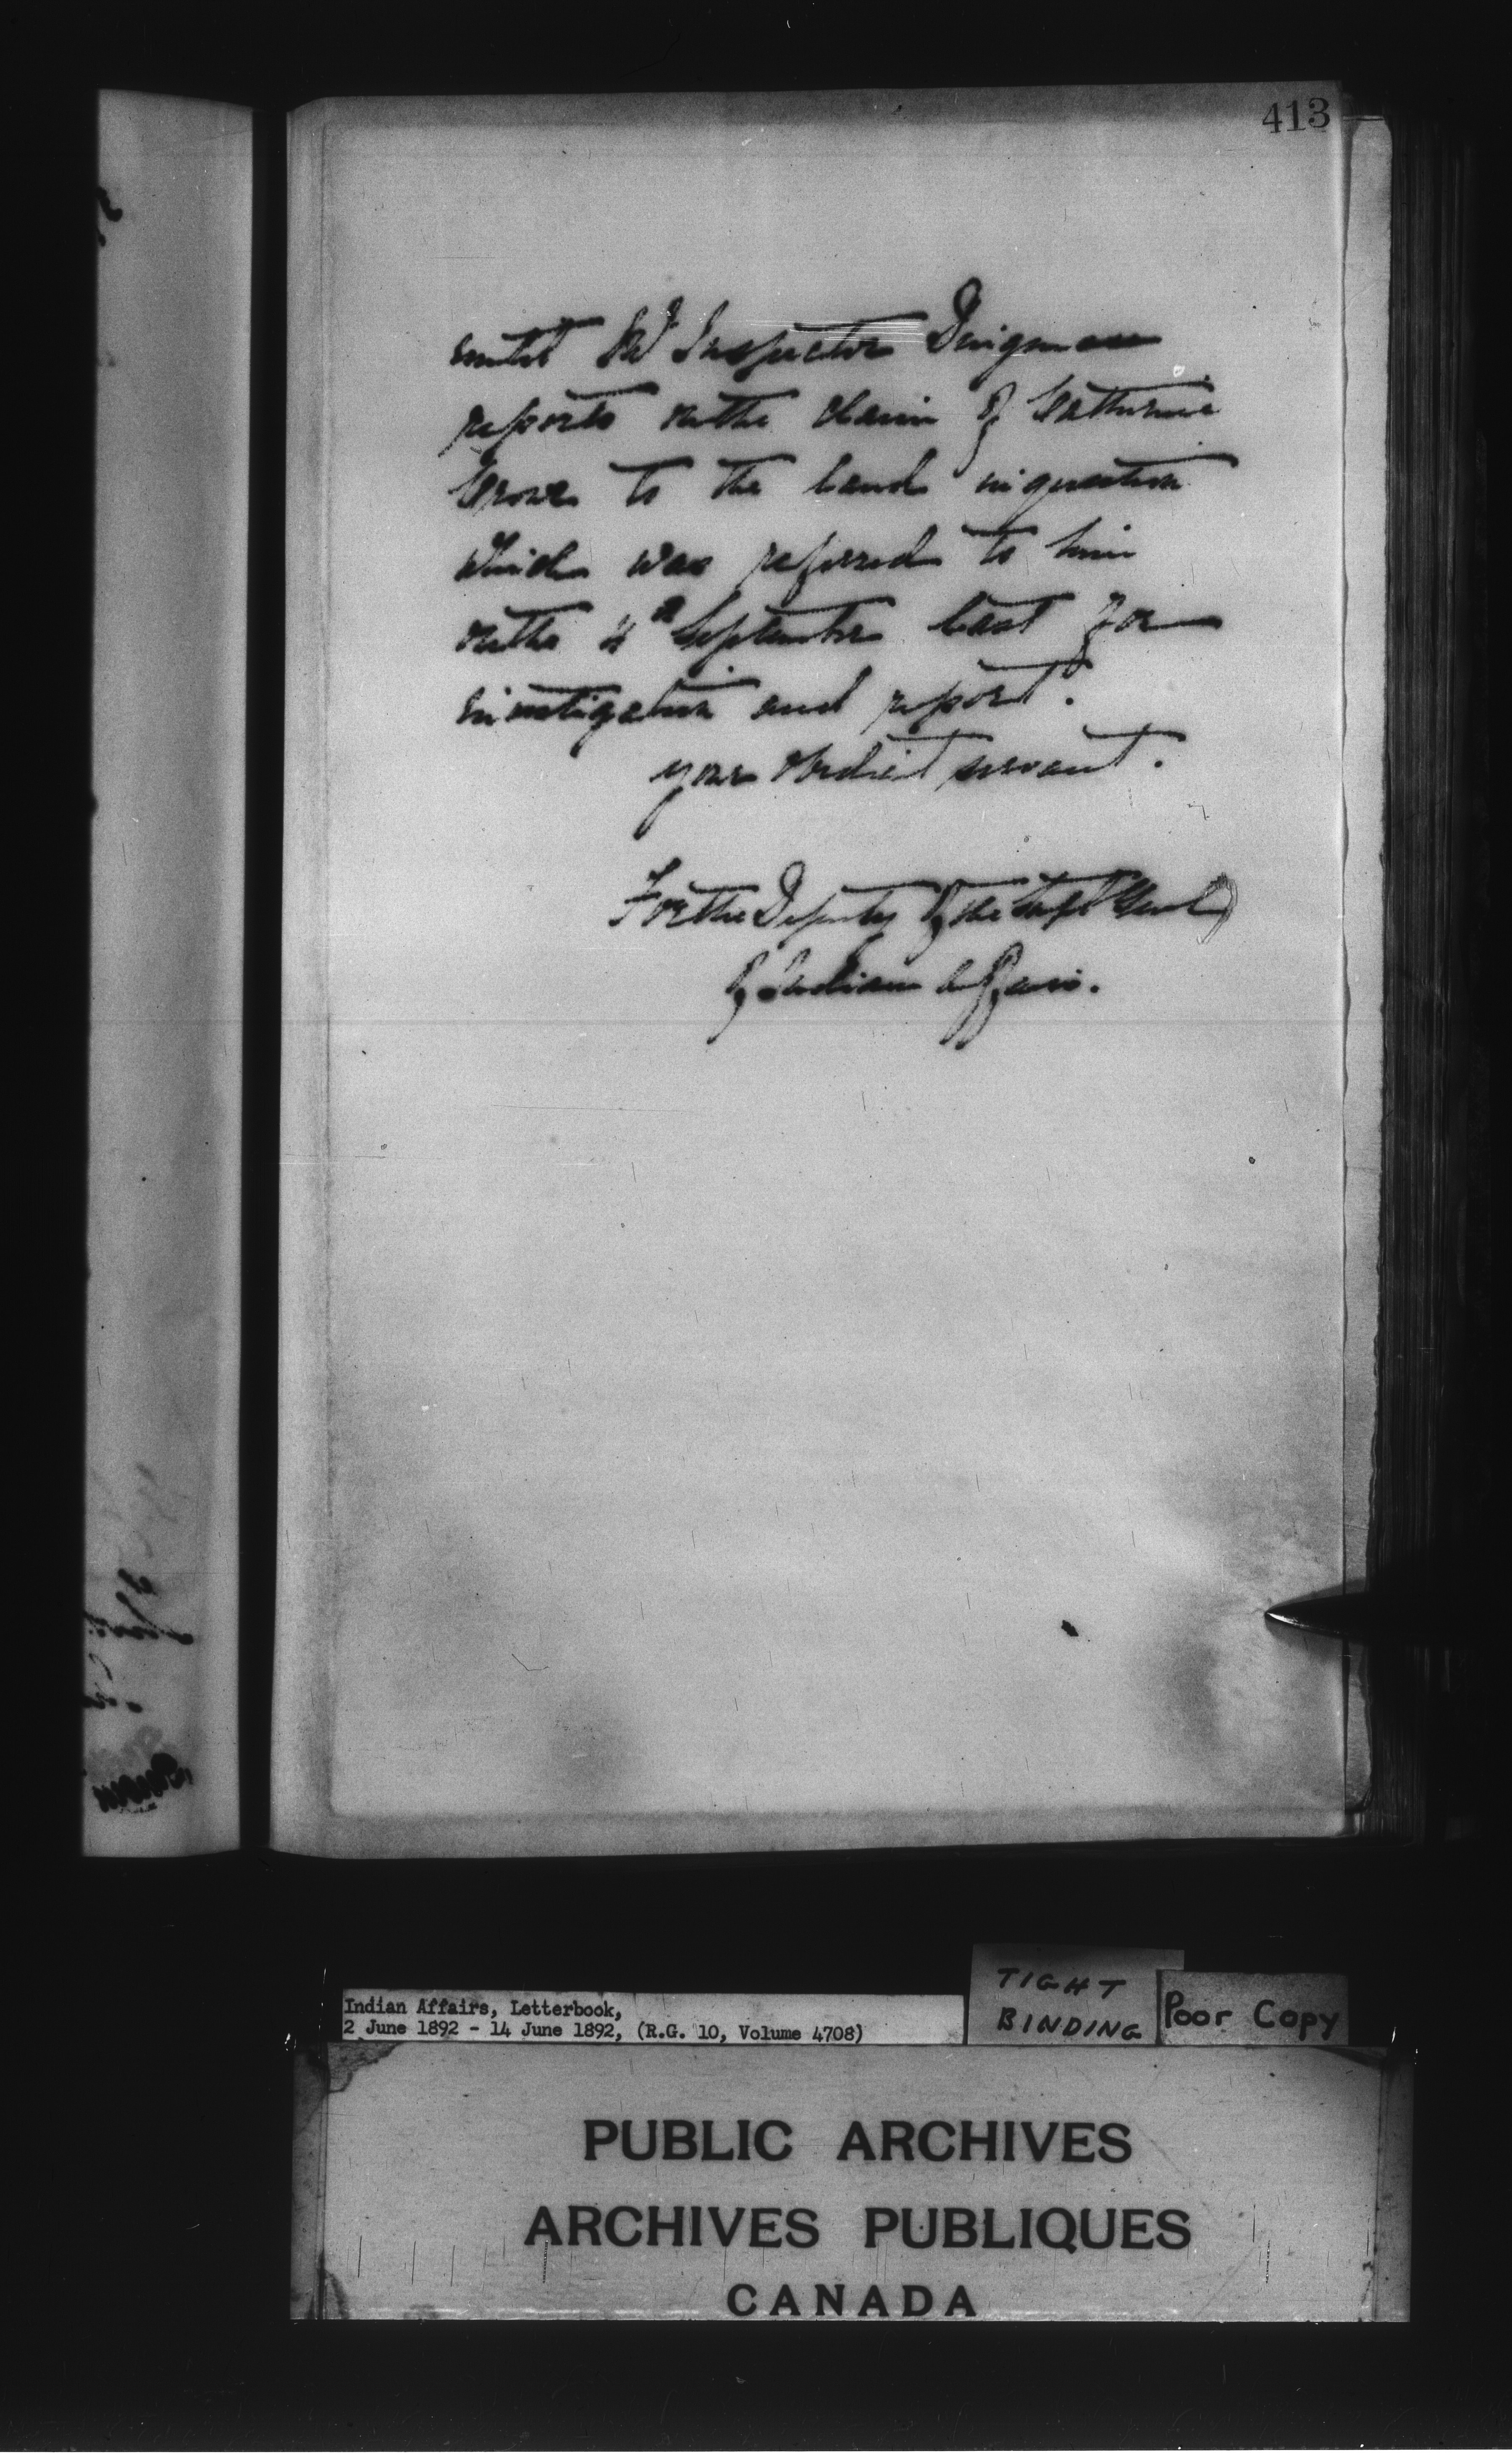 413
until Mr Inspector Dingman
reports on the claim of Catherine
Crowe to the land in question
which was referred to him
on the 4th September last for
investigation and report.
your obedient servant.
For the Deputy of the Supt Genl
of Indian Affairs.
Indian Affairs, Letterbook,
2 June 1892 - 14 June 1892, (R.G. 10, Volume 4708)
TIGHT
BINDING
Poor Copy
PUBLIC ARCHIVES
ARCHIVES PUBLIQUES
CANADA